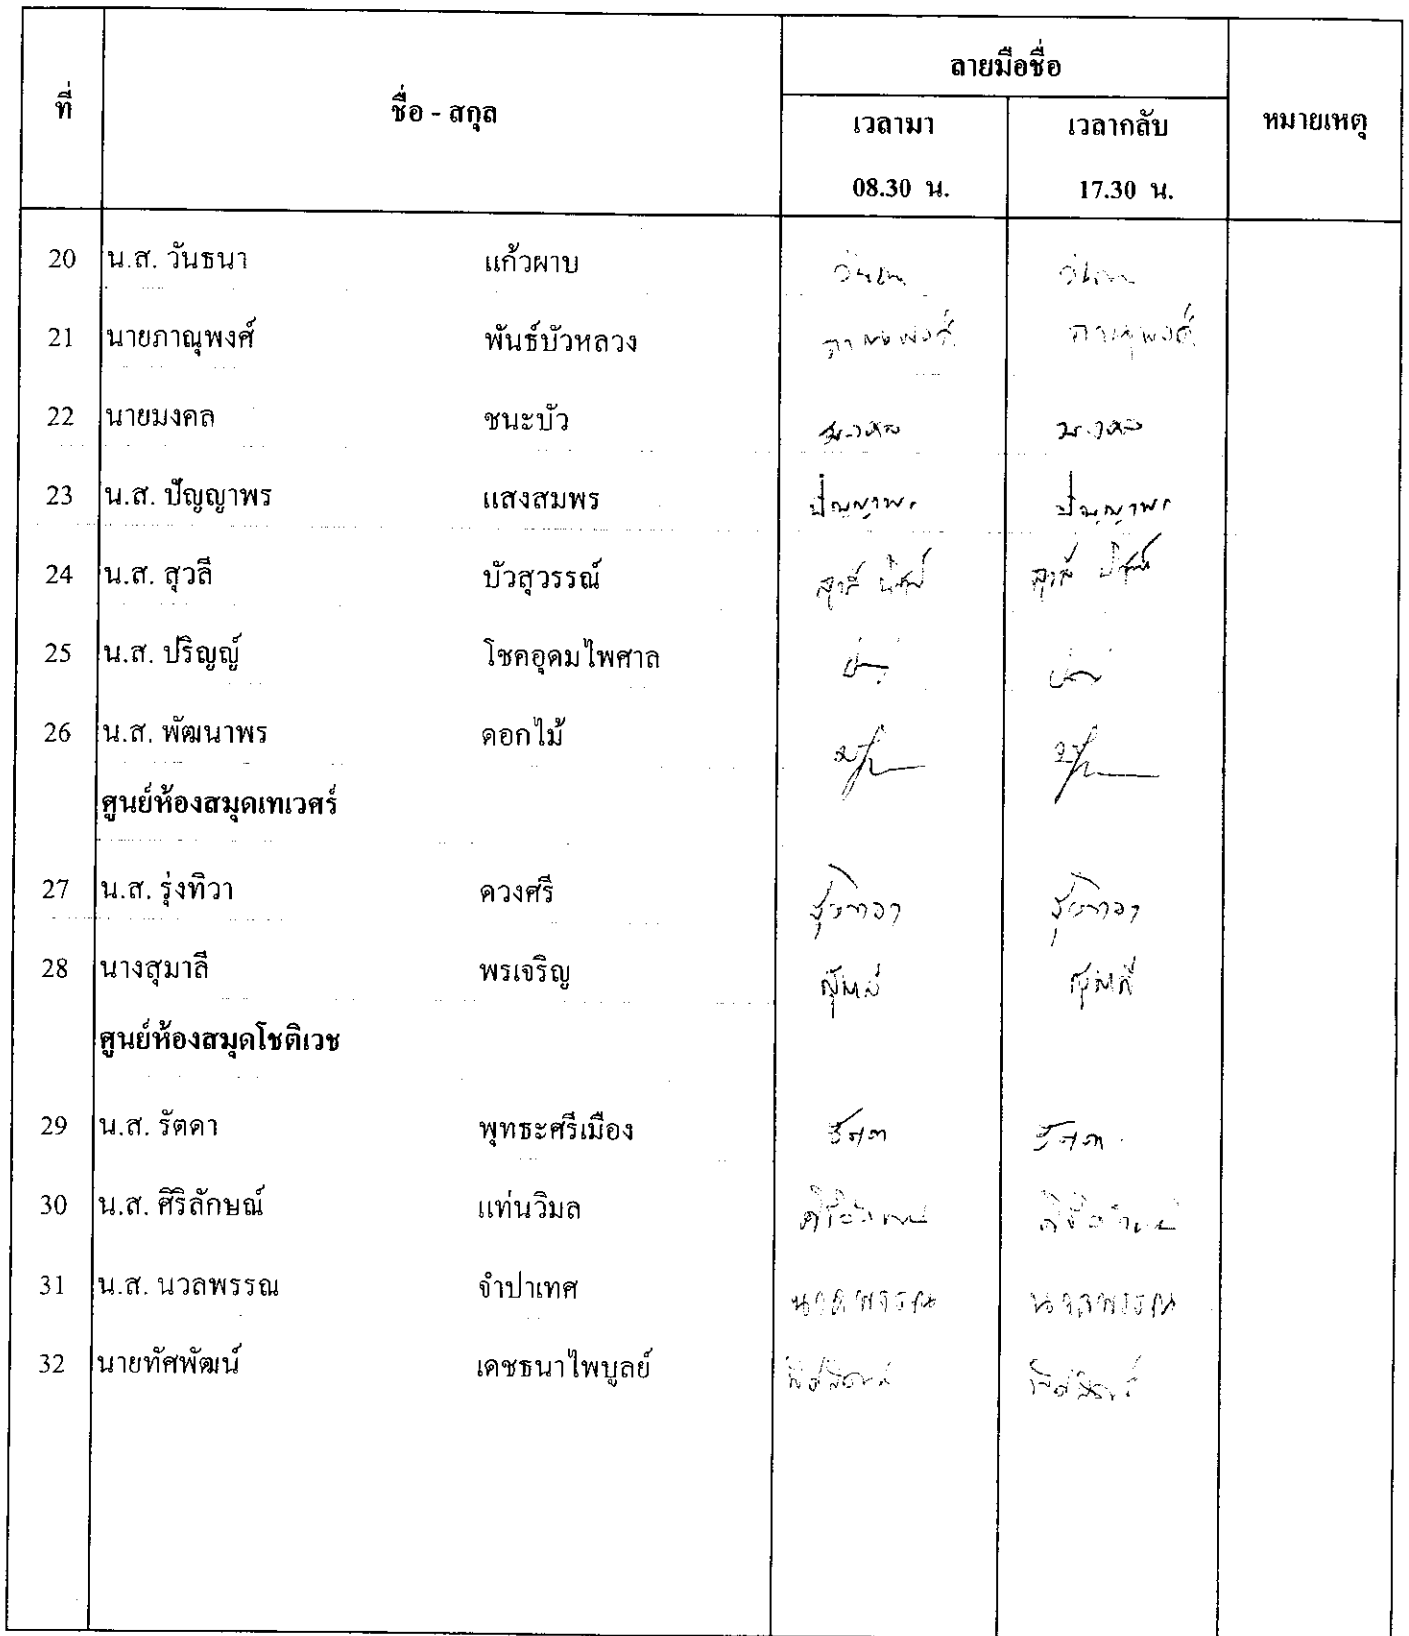 ลายมือชื่อ
ที่ ชื่อ - สกุล เวลามา เวลากลับ หมายเหตุ
08.30 น. 17.30 น.
20 น.ส. วันธนา แก้วผาบ
21 นายภาณุพงศ์ พันธ์บัวหลวง ภาณุพงศ์ ภาณุพงศ์
22 นายมงคล ชนะบัว มงคล มงคล
23 น.ส. ปัญญาพร แสงสมพร ปัญญาพร ปัญญาพร
24 น.ส. สุวลี บัวสุวรรณ์ สุวลี สุวลี
25 น.ส. ปริญญ์ โชคอุดมไพศาล
26 น.ส. พัฒนาพร ดอกไม้
ศูนย์ห้องสมุดเทเวศร์
27 น.ส. รุ่งทิวา ดวงศรี รุ่งทิวา รุ่งทิวา
28 นางสุมาลี พรเจริญ สุมาลี สุมาลี
ศูนย์ห้องสมุดโชติเวช
29 น.ส. รัตดา พุทธะศรีเมือง รัตดา รัตดา
30 น.ส. ศิริลักษณ์ แท่นวิมล ศิริลักษณ์ ศิริลักษณ์
31 น.ส. นวลพรรณ จำปาเทศ นวลพรรณ นวลพรรณ
32 นายทัศพัฒน์ เดชธนาไพบูลย์